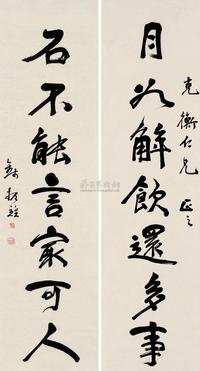 克衡仁兄正之
月如解飲還多事
石不能言最可人
錢振鍠